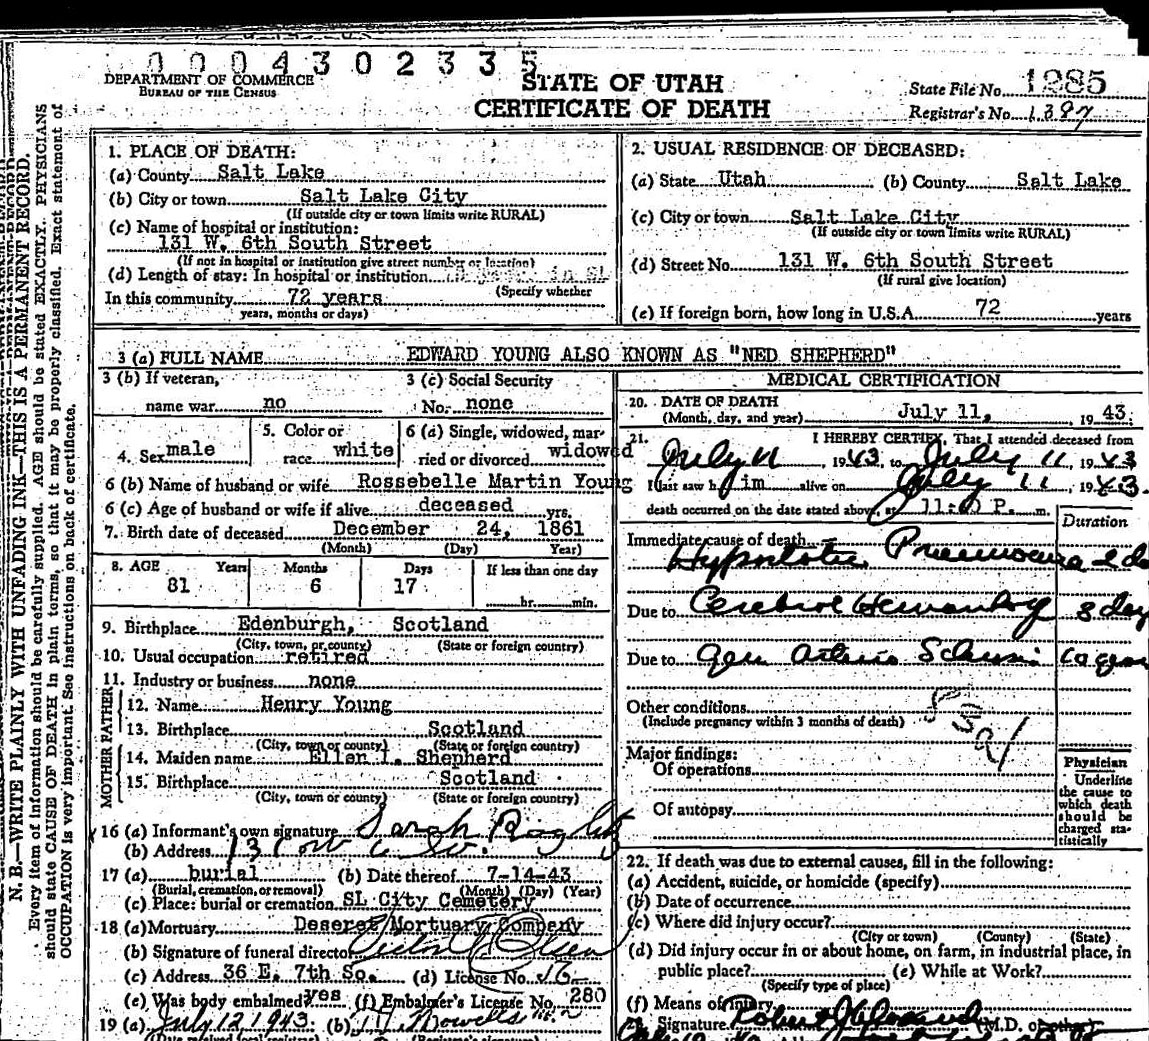 000430 2335
DEPARTMENT OF COMMERCE
BUREAU OF THE CENSUS
STATE OF UTAH
CERTIFICATE OF DEATH
State File No. 1285
Registrar's No. 1387
N. B.—WRITE PLAINLY WITH UNFADING INK—THIS IS A PERMANENT RECORD.
Every item of information should be carefully supplied. AGE should be stated EXACTLY. PHYSICIANS
should state CAUSE OF DEATH in plain terms, so that it may be properly classified. Exact statement of
OCCUPATION is very important. See instructions on back of certificate.
1. PLACE OF DEATH:
(a) County Salt Lake
(b) City or town Salt Lake City
(If outside city or town limits write RURAL)
(c) Name of hospital or institution:
131 W. 6th South Street
(If not in hospital or institution give street number or location)
(d) Length of stay: In hospital or institution
(Specify whether
In this community 72 years
years, months or days)
2. USUAL RESIDENCE OF DECEASED:
(a) State Utah (b) County Salt Lake
(c) City or town Salt Lake City
(If outside city or town limits write RURAL)
(d) Street No. 131 W. 6th South Street
(If rural give location)
(e) If foreign born, how long in U.S.A. 72 years
3 (a) FULL NAME EDWARD YOUNG ALSO KNOWN AS "NED SHEPHERD"
3 (b) If veteran, 3 (c) Social Security
name war no No. none
4. Sex male 5. Color or race white 6 (a) Single, widowed, married or divorced widowed
6 (b) Name of husband or wife Rossebelle Martin Young
6 (c) Age of husband or wife if alive deceased yrs.
7. Birth date of deceased December 24, 1861
(Month) (Day) Year)
8. AGE Years Months Days If less than one day
81 6 17 hr. min.
9. Birthplace Edenburgh, Scotland
(City, town, or county) (State or foreign country)
10. Usual occupation retired
11. Industry or business none
FATHER
12. Name Henry Young
13. Birthplace Scotland
(City, town or county) (State or foreign country)
MOTHER
14. Maiden name Ellen I. Shepherd
15. Birthplace Scotland
(City, town or county) (State or foreign country)
16 (a) Informant's own signature Sarah
(b) Address 131
17 (a) burial (b) Date thereof 7-14-43
(Burial, cremation, or removal) (Month) (Day) (Year)
(c) Place: burial or cremation SL City Cemetery
18 (a) Mortuary Deseret Mortuary Company
(b) Signature of funeral director
(c) Address 36 E. 7th So. (d) License No. 16
(e) Was body embalmed? yes (f) Embalmer's License No. 280
19 (a) July 12, 1943 (b)
(Date received local registrar) (Registrar's signature)
MEDICAL CERTIFICATION
20. DATE OF DEATH
(Month, day, and year) July 11, 19 43.
21. I HEREBY CERTIFY, That I attended deceased from
July 11 1943 to July 11, 1943
I last saw him alive on July 11, 1943.
death occurred on the date stated above, at P. m.
Duration
Immediate cause of death
Hypostatic Pneumonia 2 da
Due to Cerebral Hemorrhage 3 day
Due to Gen Arterio
Other conditions
(Include pregnancy within 3 months of death)
Major findings:
Of operations
Of autopsy
Physician
Underline
the cause to
which death
should be
charged sta-
tistically
22. If death was due to external causes, fill in the following:
(a) Accident, suicide, or homicide (specify)
(b) Date of occurrence
(c) Where did injury occur?
(City or town) (County) (State)
(d) Did injury occur in or about home, on farm, in industrial place, in
public place? (e) While at Work?
(Specify type of place)
(f) Means of injury
Signature Robert (M.D. or other)